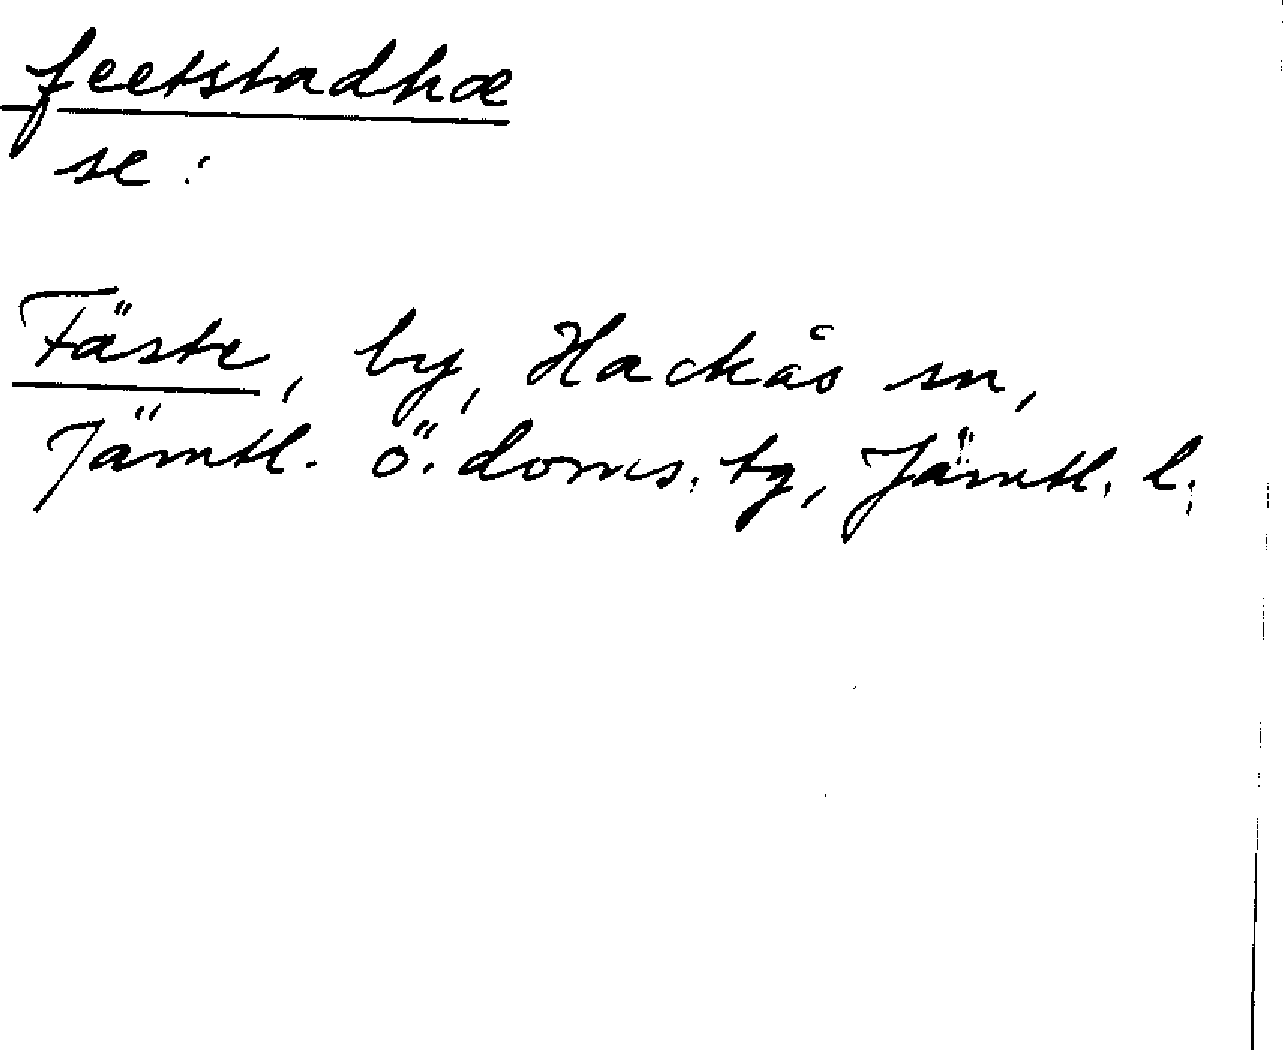 feetstadhæ
se:
Fäste, by, Hackås sn,
Jämtl. ö. doms. tg, Jämtl. l.